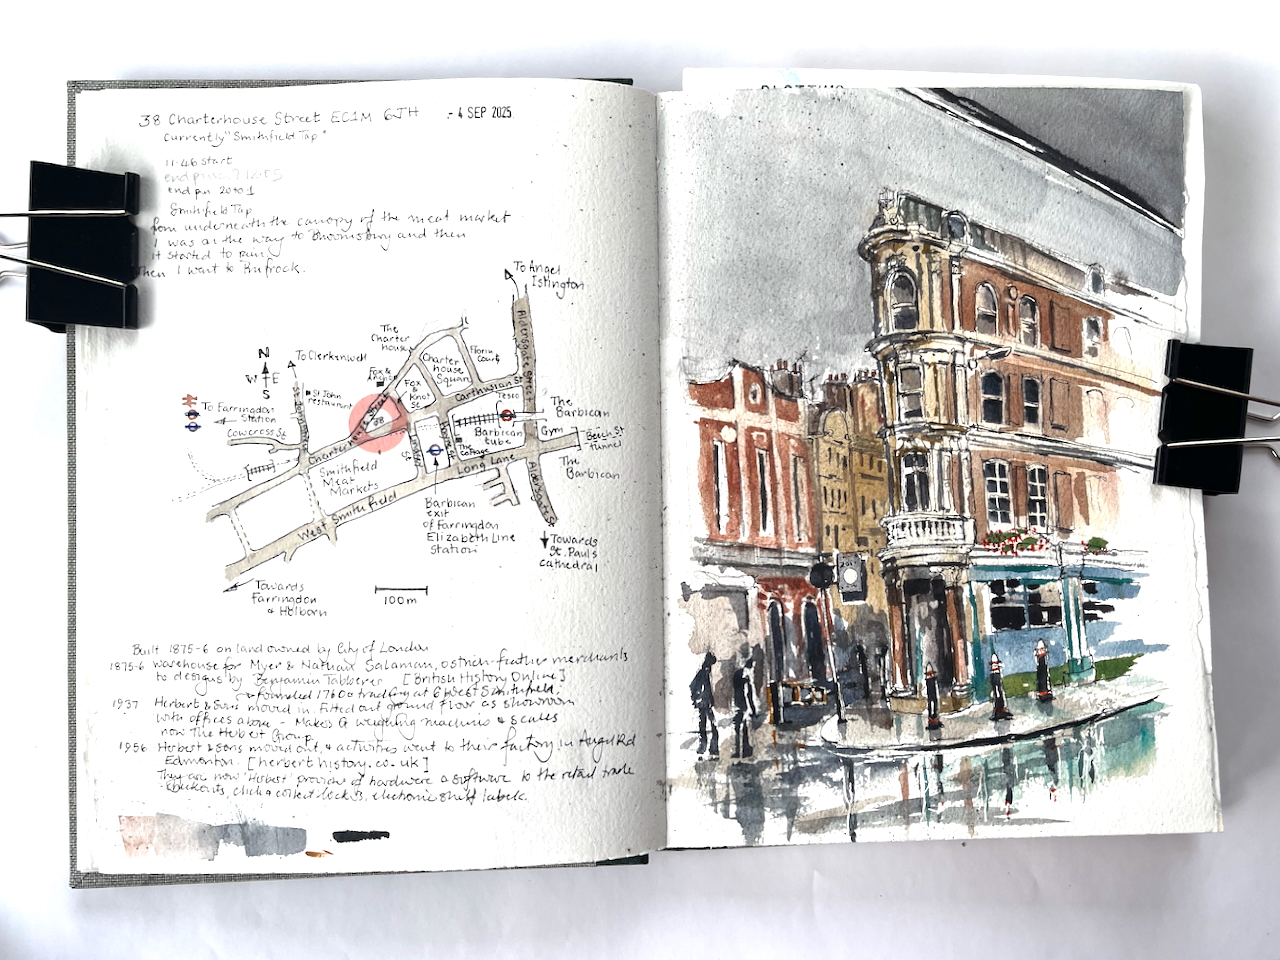 38 Charterhouse Street EC1M 6JH
- 4 SEP 2025
Currently "Smithfield Tap"
11.46 start
end pen 20 to 1
Smithfield Tap
from underneath the canopy of the meat market
I was on the way to Bloomsbury and then
it started to rain
Then I went to Prufrock.
To Angel
Islington
Aldersgate Street
The
Charter
house
Charter
house
Square
Florin
Court
N
W E
S
To Clerkenwell
St John
restaurant
Fox &
Anchor
Fox
& Knot
St
Carthusian St
Tesco
The
Barbican
To Farringdon
Station
Cowcross St
Charterhouse Street
38
Barbican
tube
Gym
Beech St
tunnel
The
Cottage
Long Lane
The
Barbican
Smithfield
Meat
Markets
West Smithfield
Aldersgate St
Barbican
exit
of Farringdon
Elizabeth Line
Station
Towards
St. Pauls
cathedral
Towards
Farringdon
& Holborn
100m
Built 1875-6 on land owned by City of London
1875-6 warehouse for Myer & Nathan Salaman, ostrich-feather merchants
to designs by Benjamin Tabberer [British History Online]
founded 1760 trading at 6 West Smithfield.
1937 Herbert & Sons moved in. Fitted out ground floor as showroom
with offices above - Makers of weighing machines & scales
now The Herbert Group.
1956 Herbert & Sons moved out, & activities went to their factory in Angel Rd
Edmonton. [herberthistory.co.uk]
They are now 'Herbert' providers of hardware & software to the retail trade
- checkouts, click & collect lockers, electronic shelf labels.